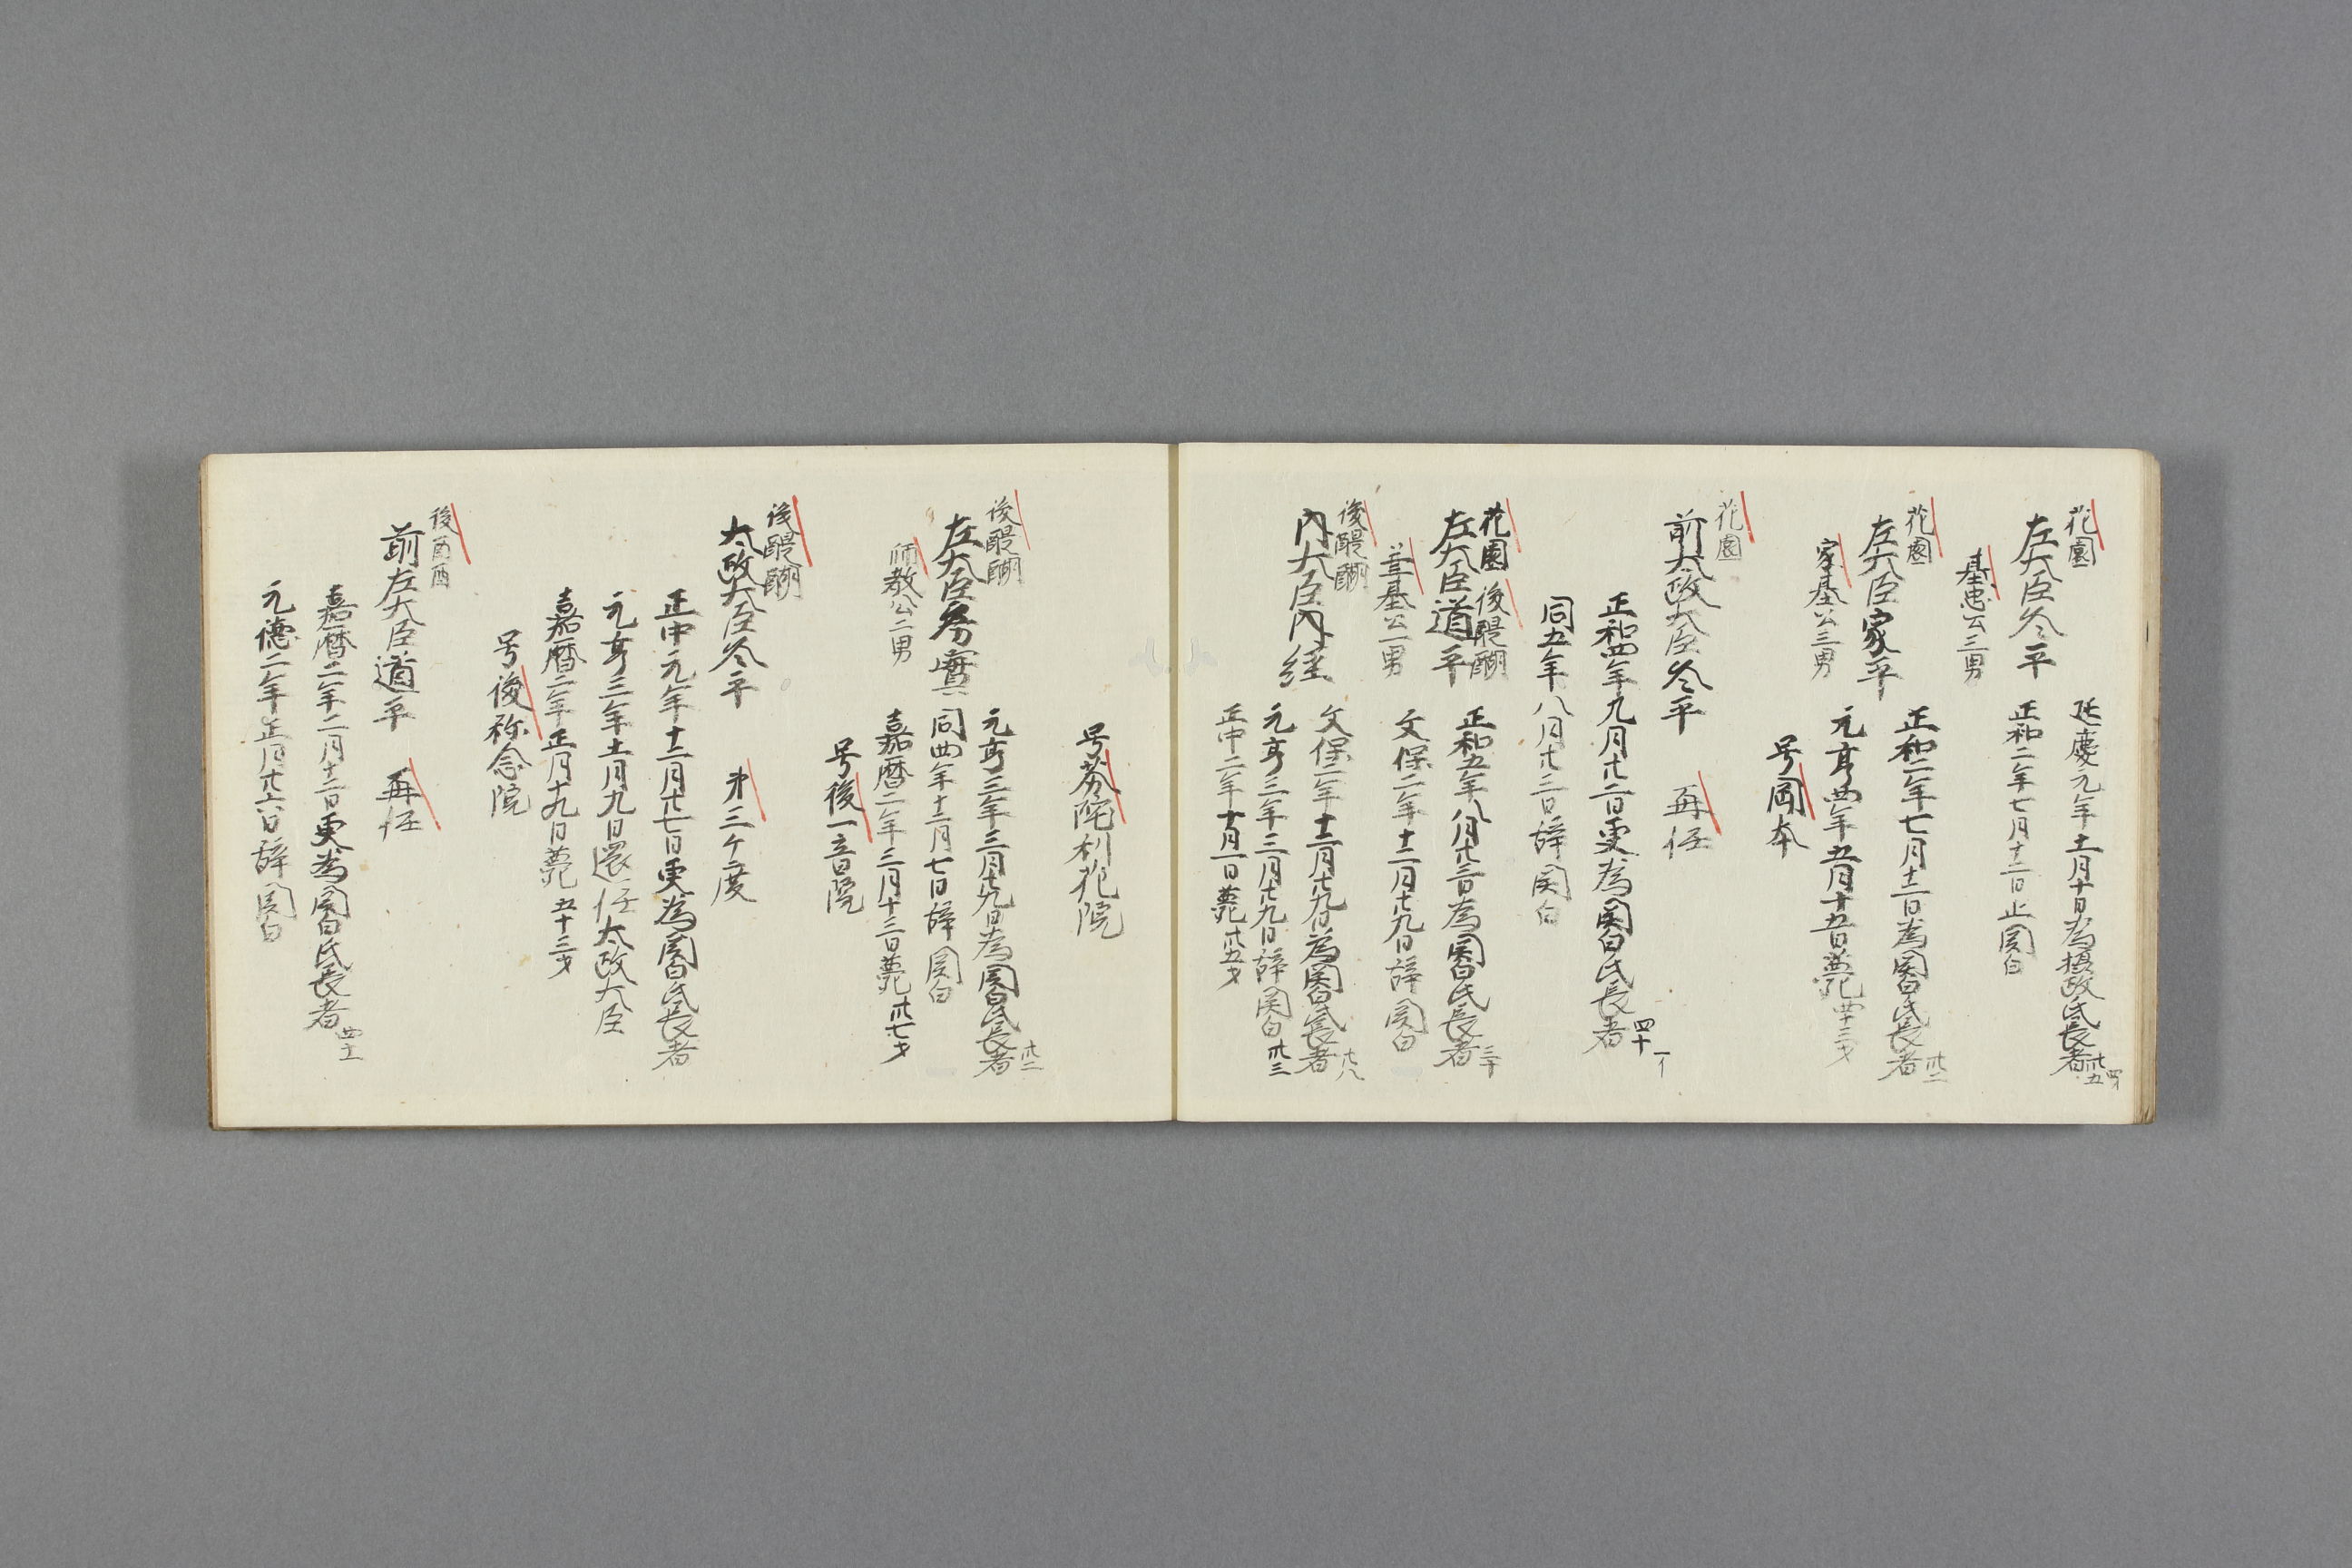 花園
左大臣冬平
延慶元年十一月十日為摂政氏長者 卅五
四イ
基忠公三男
正和二年七月十二日止関白
花園
左大臣家平
正和二年七月十二日為関白氏長者 卅二
家基公三男
元亨四年五月十五日薨 四十三才
号岡本
花園
前太政大臣冬平 再任
正和四年九月廿二日更為関白氏長者 四十
一イ
同五年八月廿三日辞関白
花園 後醍醐
左大臣道平
正和五年八月廿三日為関白氏長者 三十
兼基公一男
文保二年十二月廿九日辞関白
後醍醐
内大臣内経
文保二年十二月廿九日為関白氏長者 廿八
元亨三年三月廿九日辞関白 卅三
正中二年十月一日薨 卅五才
号芬陀利花院
後醍醐
左大臣房實
元亨三年三月廿九日為関白氏長者 卅二
同四年十二月七日辞関白
師教公二男
嘉暦二年三月十三日薨 卅七才
号後一音院
後醍醐
太政大臣冬平 第三ケ度
正中元年十二月廿七日更為関白氏長者
元亨三年十一月九日還任太政大臣
嘉暦二年正月十九日薨 五十三才
号後称念院
後酉酉
前左大臣道平 再任
嘉暦二年二月十二日更為関白氏長者 四十一
元徳二年正月廿六日辞関白